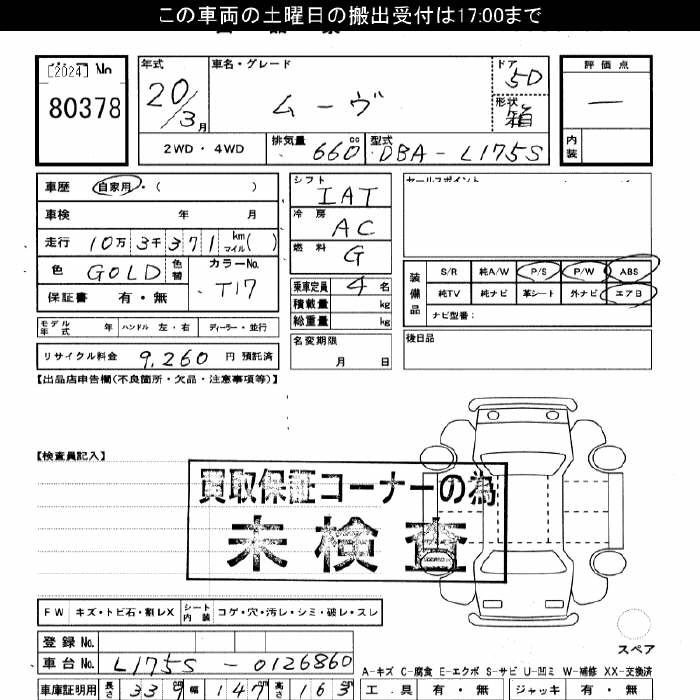 この車両の土曜日の搬出受付は17:00まで
[2024] No 80378
年式 20/3月
車名・グレード ムーヴ
ドア 5D
形状 箱
評価点 —
内装
2WD・4WD
排気量 660cc
型式 DBA-L175S
車歴 自家用・( )
車検 年 月
走行 10万3千371 km マイル( )
色 GOLD 色替 カラーNo. T17
保証書 有・無
シフト IAT
冷房 AC
燃料 G
乗車定員 4名
積載量 kg
総重量 kg
セールスポイント
装備品 S/R 純A/W P/S P/W ABS
純TV 純ナビ 革シート 外ナビ エアB
ナビ型番:
モデル年式 年 ハンドル 左・右 ディーラー・並行
リサイクル料金 9,260 円 預託済
名変期限 月 日
後日品
【出品店申告欄(不良箇所・欠品・注意事項等)】
【検査員記入】
買取保証コーナーの為
未検査
FW キズ・トビ石・割レX シート内装 コゲ・穴・汚レ・シミ・破レ・スレ
スペア
登録No.
車台No. L175S-0126860
A-キズ C-腐食 E-エクボ S-サビ U-凹ミ W-補修 XX-交換済
車庫証明用 長さ 339 幅 147 高さ 163
工具 有・無 ジャッキ 有・無